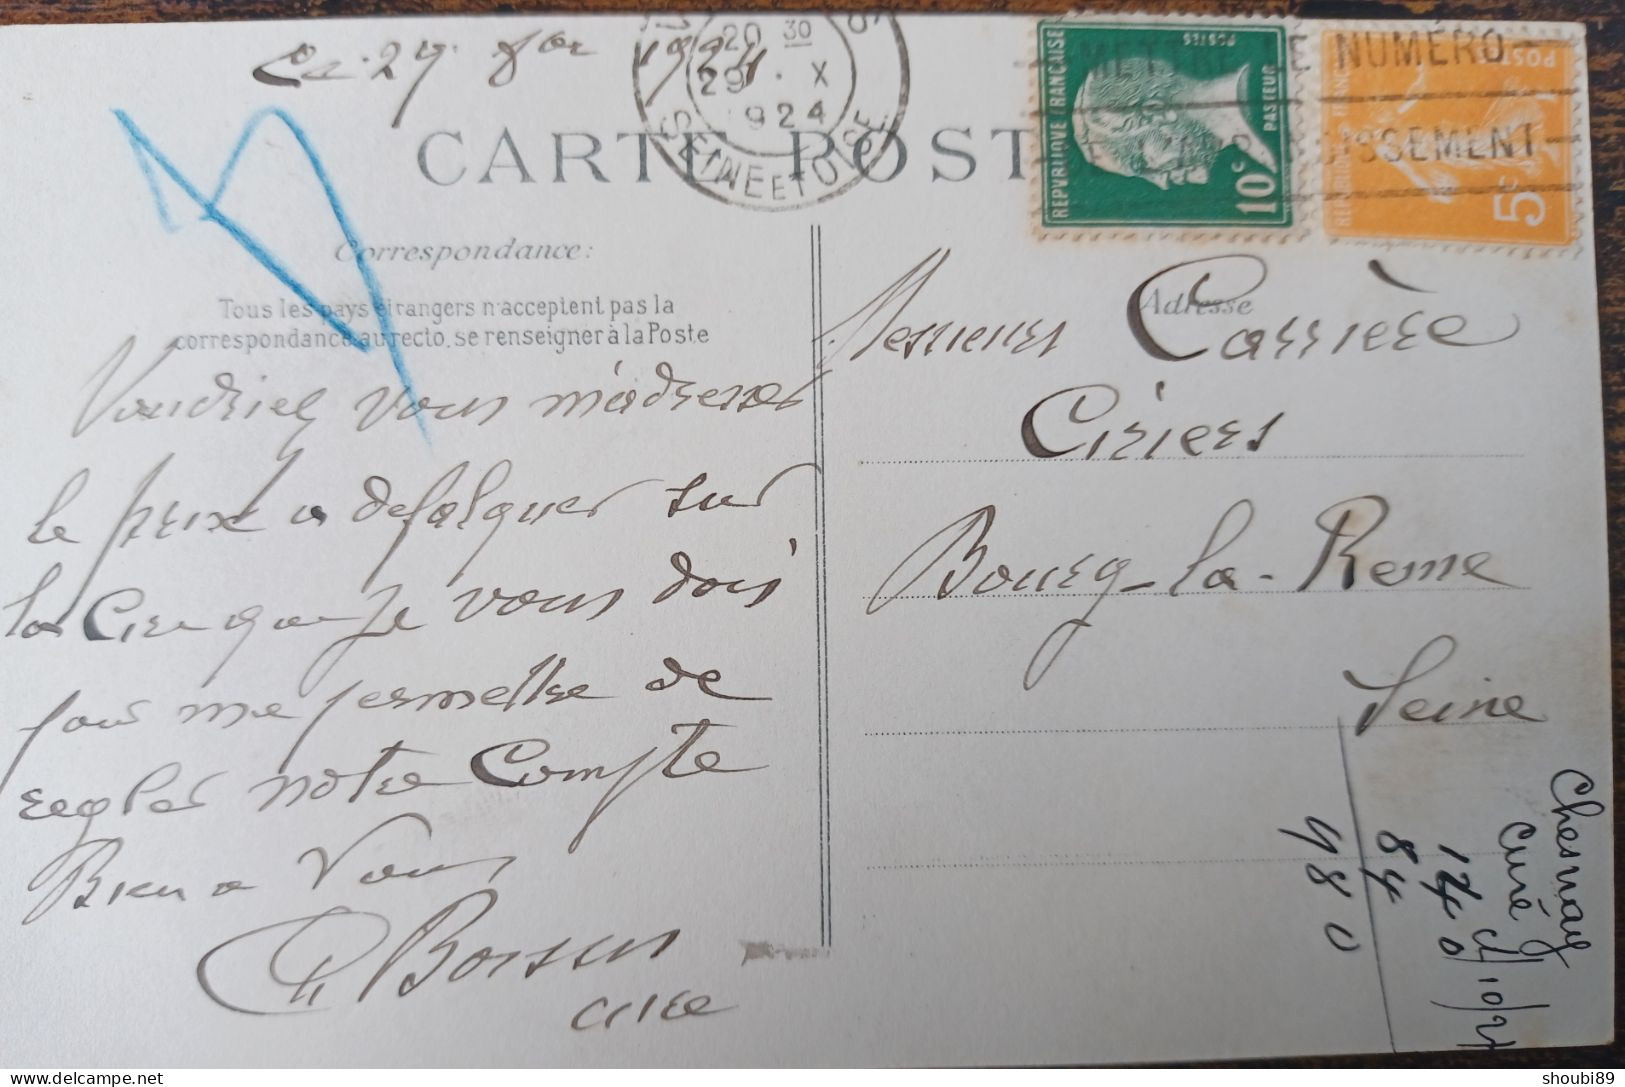 Ce 27 8bre 1924
20 30
29 X
1924
SEINE ET OISE
REPUBLIQUE FRANÇAISE
POSTES
PASTEUR
10c
POSTES
5c
METTRE LE NUMÉRO
ISSEMENT
CARTE POST
Correspondance:
Tous les pays étrangers n'acceptent pas la
correspondance au recto, se renseigner à la Poste
Adresse
Voudriez vous m'adresser
le prix a defalquer sur
la Cire que je vous dois
pour me permettre de
regler notre Compte
Bien a Vous
Ch Boissus
cure
Messieurs Carrière
Ciriers
Bourg-la-Reine
Seine
Chesnay
Curé
14 0
84
98 0
Délcampe.net
shoubi89